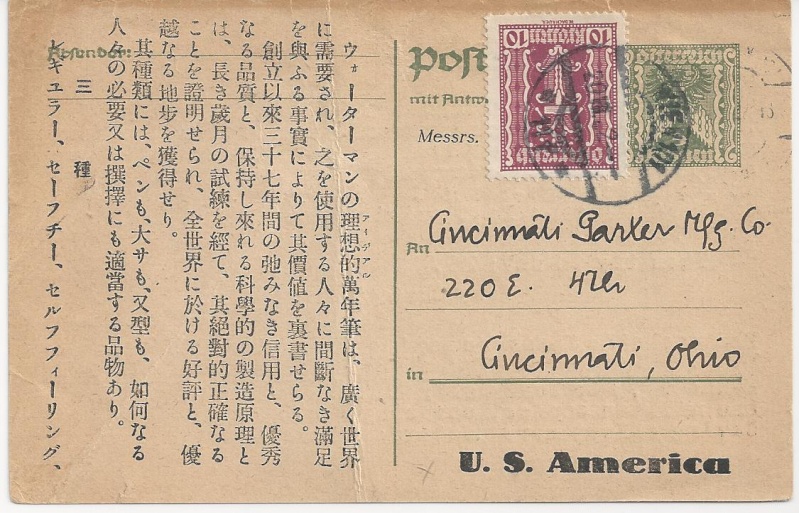 ウォーターマンの理想的萬年筆は、廣く世界
アイデアル
に需要され、之を使用する人々に間斷なき滿足
を與ふる事實によりて其價値を裏書せらる。
創立以來三十七年間の弛みなき信用と、優秀
なる品質と、保持し來れる科學的の製造原理と
は、長き歲月の試練を經て、其絕對的正確なる
ことを證明せられ、全世界に於ける好評と、優
越なる地步を獲得せり。
其種類には、ペンも、大サも、又型も、如何なる
人々の必要又は撰擇にも適當する品物あり。
三種
レギュラー、セーフチー、セルフフィーリング、
Absender:
Post
mit Antw
10 Kronen 10
Messrs.
An Cincinnati Parker Mfg. Co.
220 E. 4th
in Cincinnati, Ohio
U. S. America